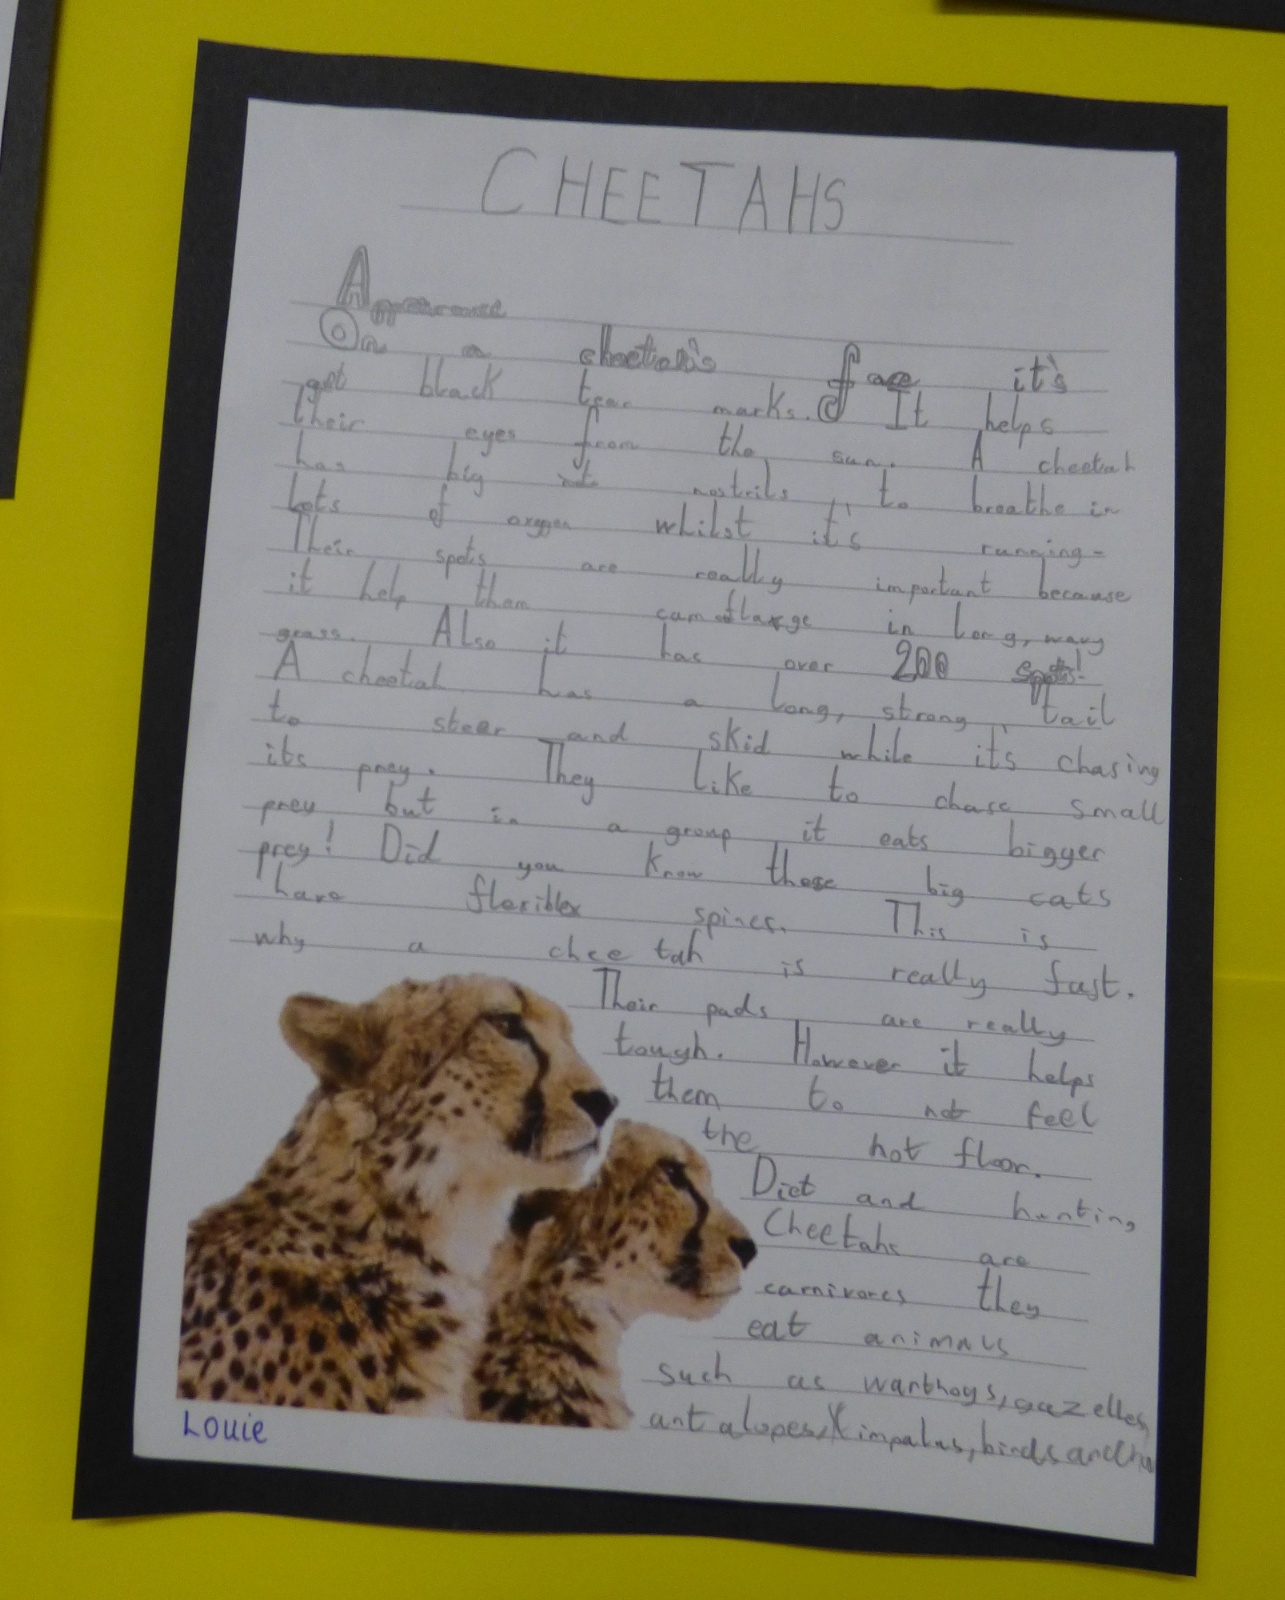 CHEETAHS
Appearance
On a cheetah's face it's
got black tear marks. It helps
their eyes from the sun. A cheetah
has big nostrils, to breathe in
lots of oxygen whilst it's running-
Their spots are really important because
it help them camoflarge in long, wavy
grass. Also it has over 200 spots!
A cheetah has a long, strong tail
to steer and skid while it's chasing
its prey. They like to chase small
prey but in a group it eats bigger
prey! Did you know these big cats
have flexible spines. This is
why a cheetah is really fast.
Their pads are really
tough. However it helps
them to not feel
the hot floor.
Diet and hunting
Cheetahs are
carnivores they
eat animals
such as warthogs, gazelles,
antalopes, impalas, birds and
Louie